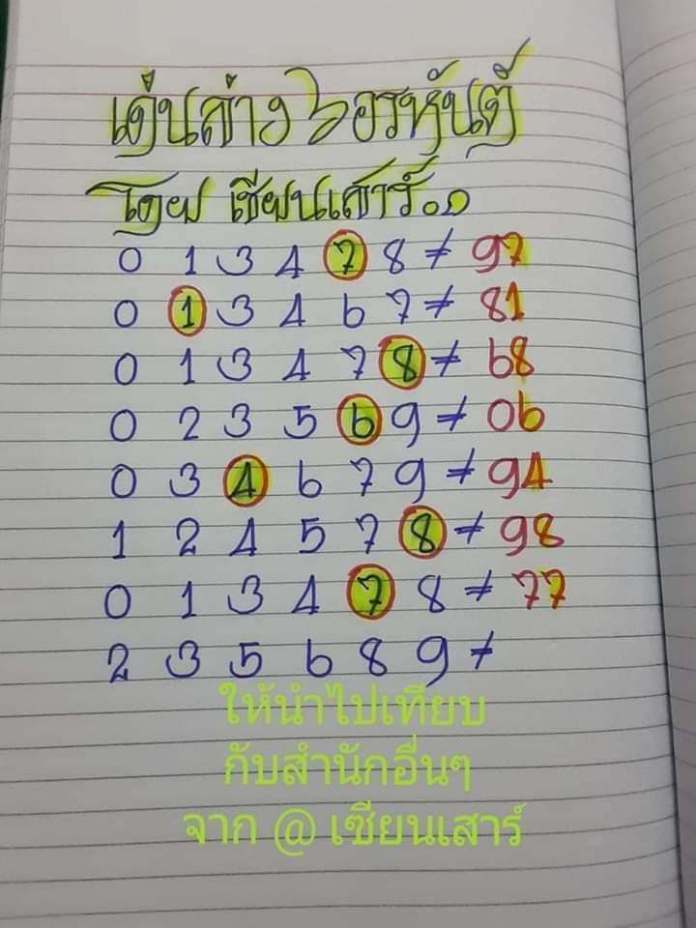 เด่นล่าง 6 อรหันต์
โดย เซียนเสาร์.๑
0 1 3 4 7 8 ≠ 97
0 1 3 4 6 7 ≠ 81
0 1 3 4 7 8 ≠ 68
0 2 3 5 6 9 ≠ 06
0 3 4 6 7 9 ≠ 94
1 2 4 5 7 8 ≠ 98
0 1 3 4 7 8 ≠ 77
2 3 5 6 8 9 ≠
ให้นำไปเทียบ
กับสำนักอื่นๆ
จาก @ เซียนเสาร์